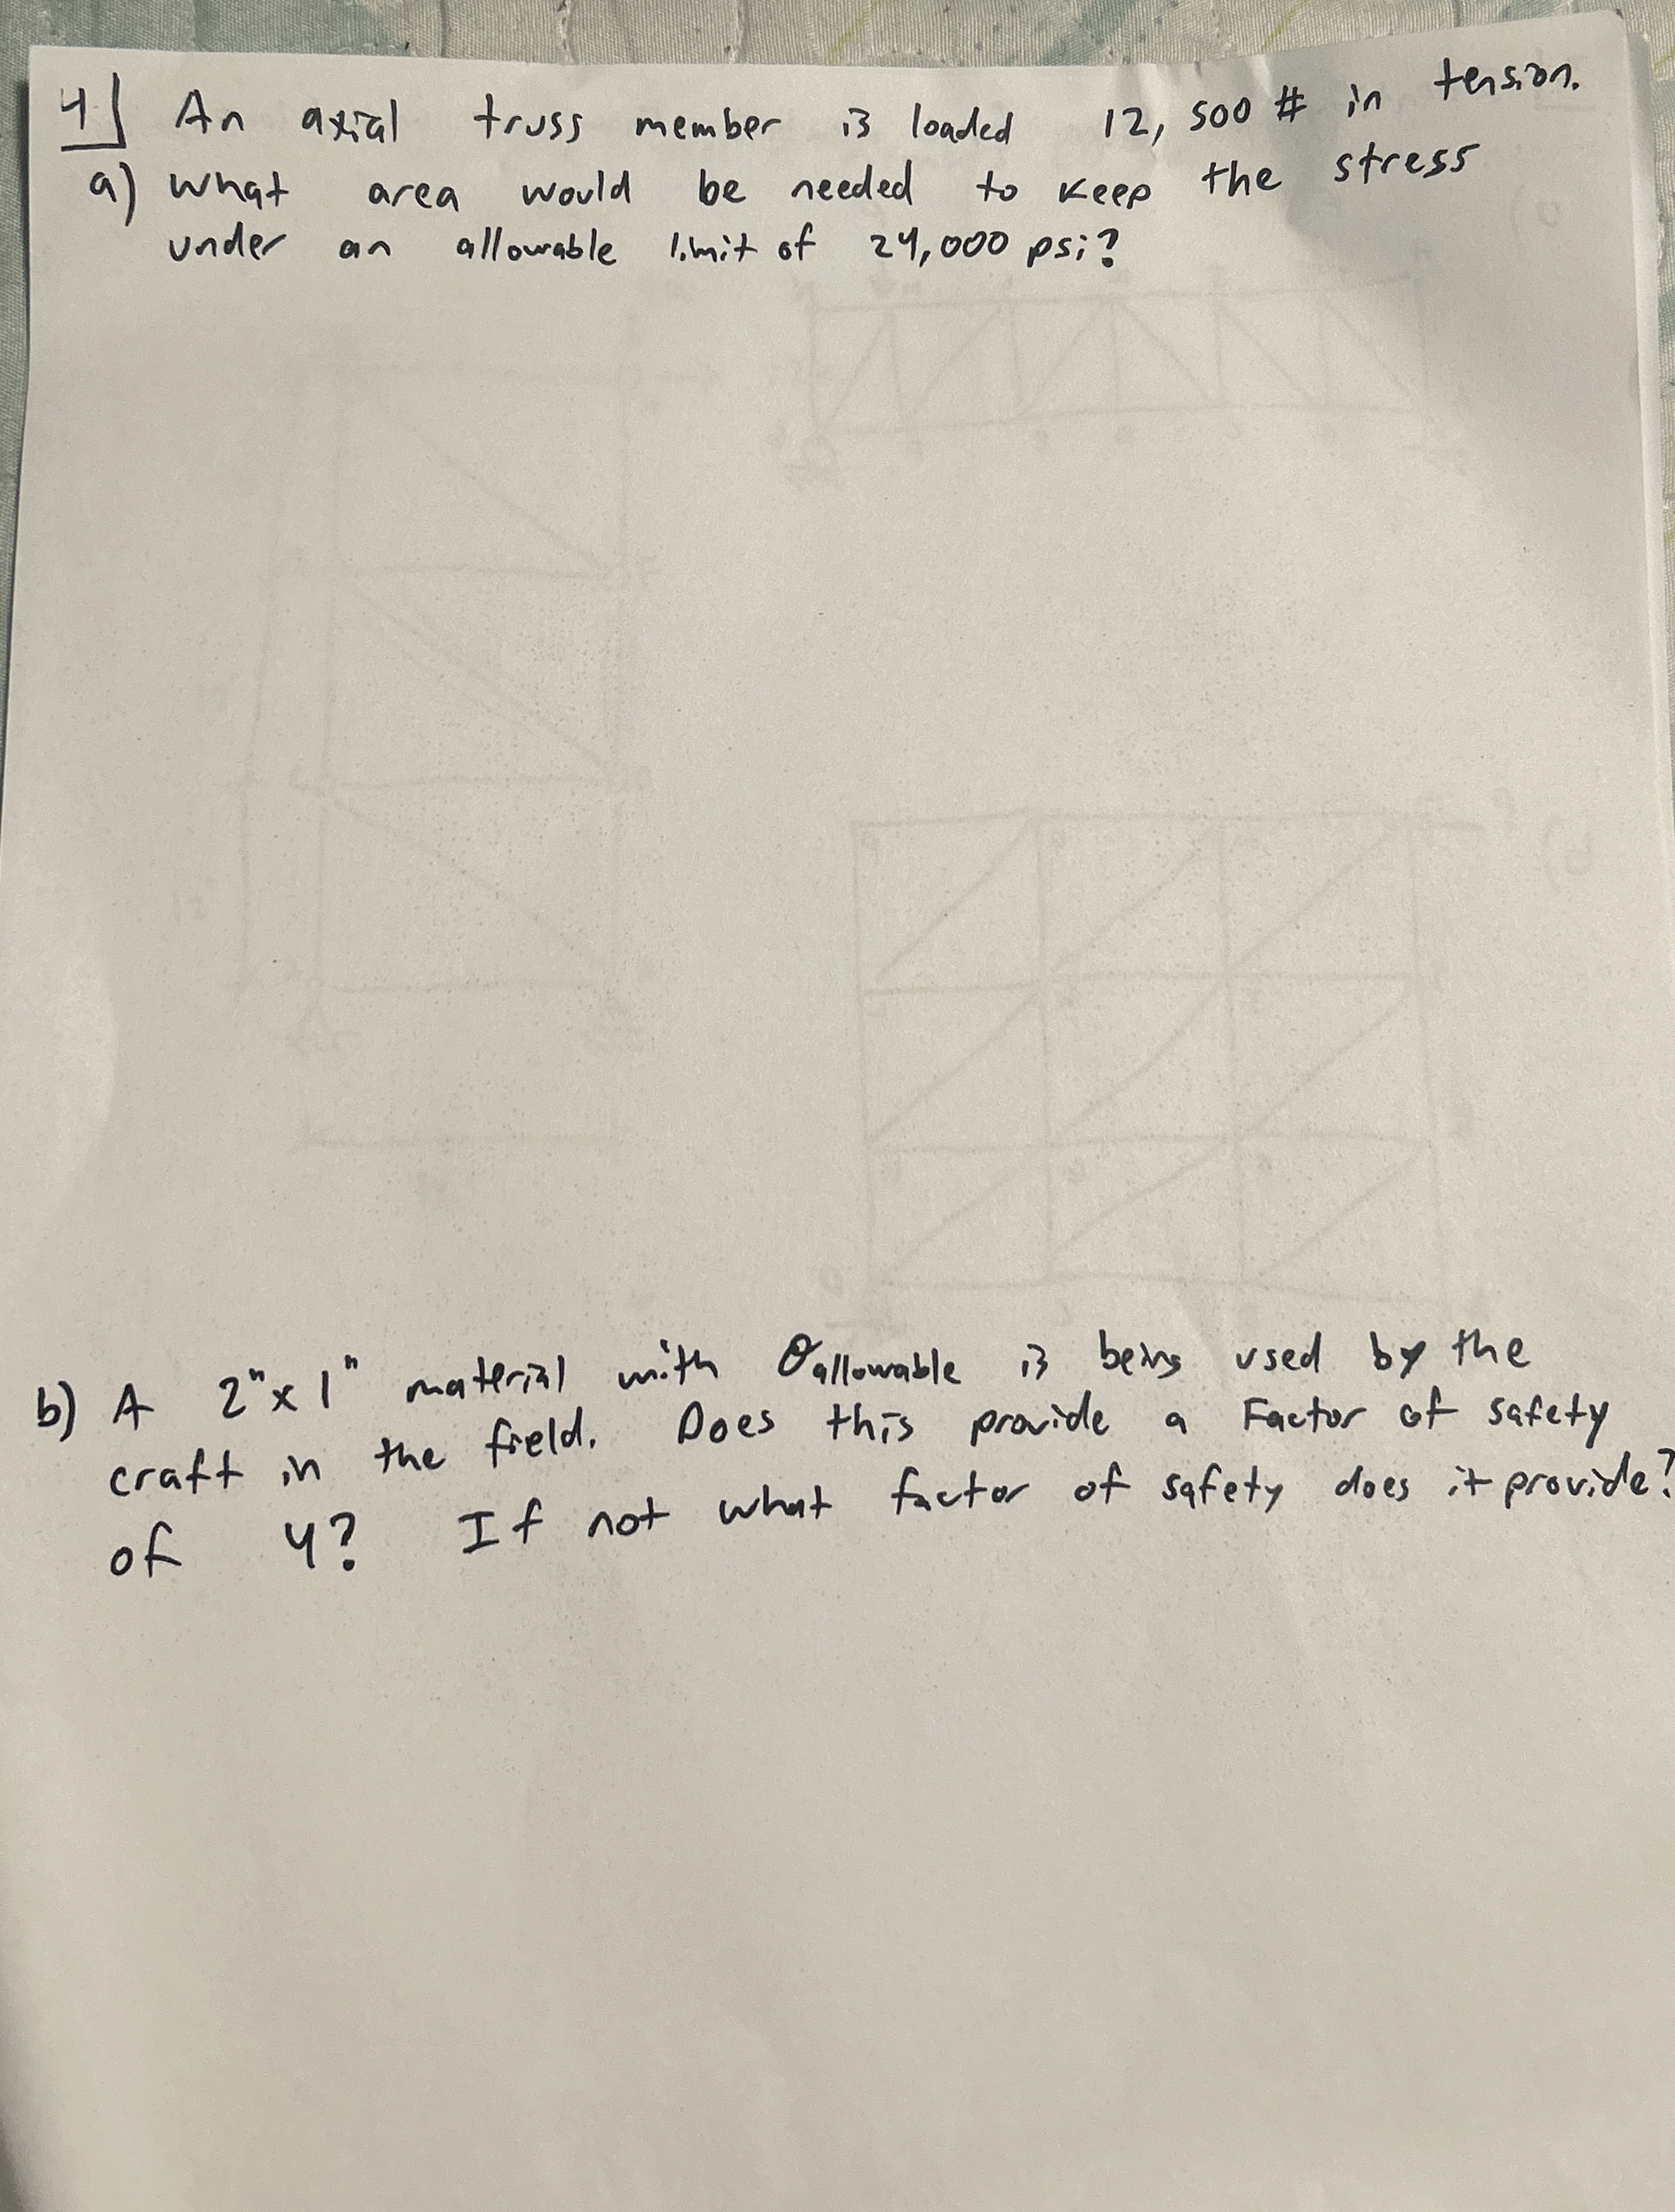 4] An axial truss member is loaded 12,500 # in tension.
a) What area would be needed to keep the stress
under an allowable limit of 24,000 psi?
b) A 2" x 1" material with σallowable is being used by the
craft in the field. Does this provide a Factor of safety
of 4? If not what factor of safety does it provide?